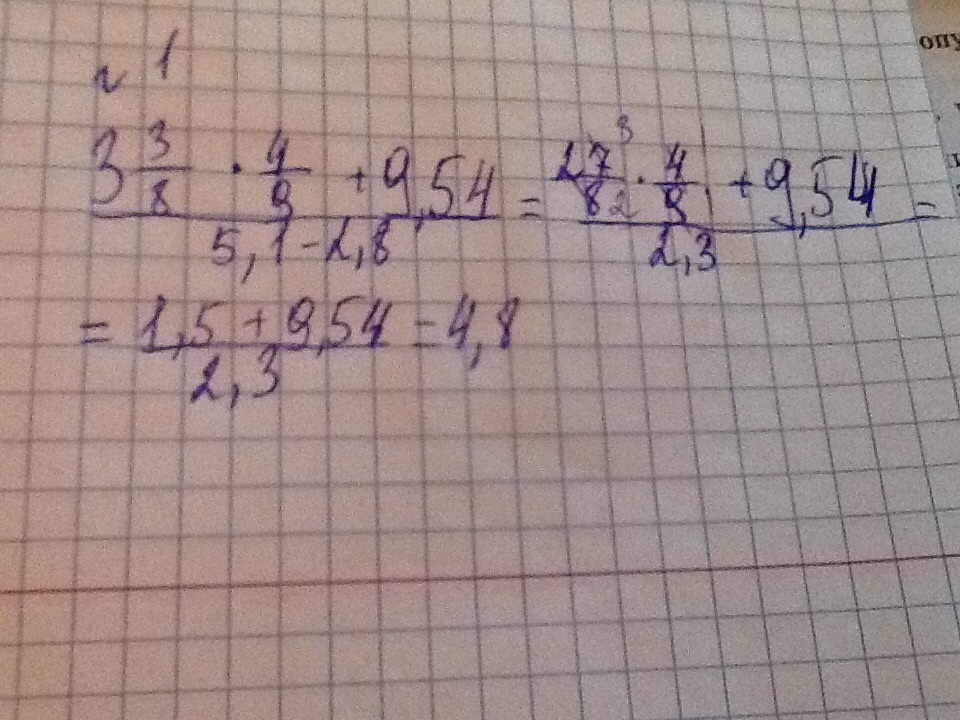 № 1
3 3/8 · 4/9 + 9,54 / 5,1 - 2,8 = 27 3 / 8 2 · 4/9 1 + 9,54 / 2,3 =
= 1,5 + 9,54 / 2,3 = 4,8
опу